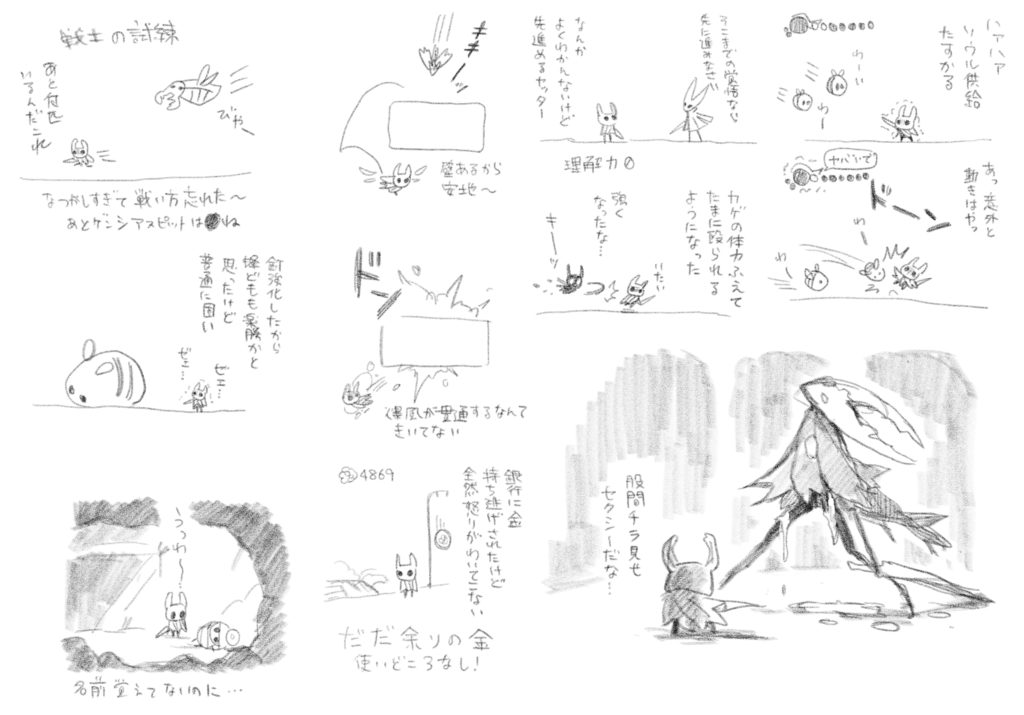 戦士の試練
あと何匹
いるんだこれ
びゃー
なつかしすぎて戦い方忘れた〜
あとゲンシアスピッドは●ね
釘強化したから
蜂どもも楽勝かと
思ったけど
普通に固い
ゼェ…
ゼェ…
うつわ〜…
名前覚えてないのに…
キキーッ
壁あるから
安地〜
ドーン
爆風が貫通するなんて
きいてない
4869
銀行に金
持ち逃げされたけど
全然怒りがわいてこない
だだ余りの金
使いどころなし!
そこまでの覚悟なら
先に進みなさい
なんか
よくわかんないけど
先進めるヤッター
理解力0
カゲの体力ふえて
たまに殴られる
ようになった
強く
なったな…
いたい
キーッ
ハァハァ
ソウル供給
たすかる
わーい
わー
ヤバいで
あっ意外と
動きはやっ
ドーン
わー
わー
股間チラ見せ
セクシーだな…